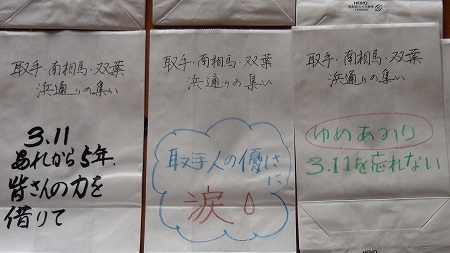 取手・南相馬・双葉
浜通りの集い
3.11
あれから5年.
皆さんの力を
借りて
取手・南相馬・双葉
浜通りの集い
取手人の優しさ
に
涙
HEIKO
取手・南相馬・双葉
浜通りの集い
ゆめあかり
3.11を忘れない